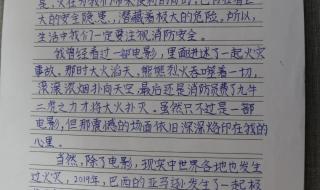 是,火在为我们带来便利的同时,也存在着巨
大的安全隐患,潜藏着极大的危险。所以,
生活中我们一定要注视消防安全。
我曾经看过一部电影,里面讲述了一起火灾
事故,那时大火滔天,熊熊烈火吞噬着一切,
滚滚浓烟扑向天空,最后还是消防员费了九牛
二虎之力才将大火扑灭。虽然只不过是一部
电影,但那震撼的场面依旧深深烙印在我的
心里。
当然,除了电影,现实中世界各地也发生
过火灾,2019年,巴西的亚马孙发生了一起